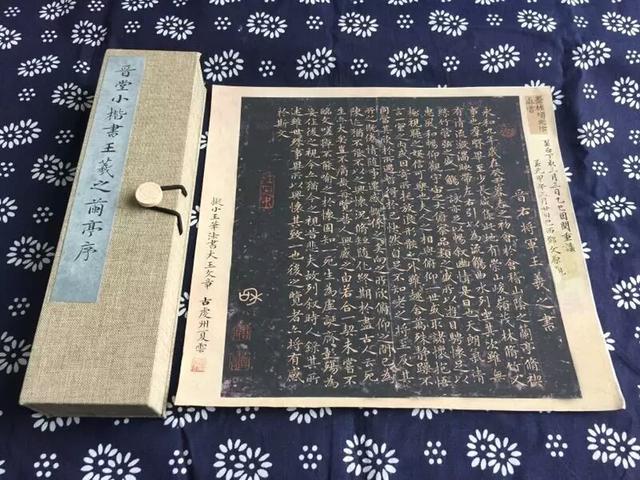 晉堂小楷書王羲之蘭亭序
晉右將軍王羲之書
永和九年歲在癸丑暮春之初會於會稽山陰之蘭亭脩稧
事也群賢畢至少長咸集此地有崇山峻嶺茂林脩竹又
有清流激湍映帶左右引以為流觴曲水列坐其次雖無
絲竹管弦之盛一觴一詠亦足以暢敘幽情是日也天朗氣清
惠風和暢仰觀宇宙之大俯察品類之盛所以遊目騁懷足以
極視聽之娛信可樂也夫人之相與俯仰一世或取諸懷抱悟
言一室之內或因寄所託放浪形骸之外雖趣舍萬殊靜躁不
同當其欣於所遇暫得於己快然自足不知老之將至及其
所之既倦情隨事遷感慨係之矣向之所欣俯仰之間以為
陳迹猶不能不以之興懷況脩短隨化終期於盡古人云死
生亦大矣豈不痛哉每覽昔人興感之由若合一契未嘗不
臨文嗟悼不能喻之於懷固知一死生為虛誕齊彭殤為
妄作後之視今亦猶今之視昔悲夫故列敘時人錄其所
述雖世殊事異所以興懷其致一也後之覽者亦將有感
於斯文
擬小王筆法書大王文章 古處州夏雲